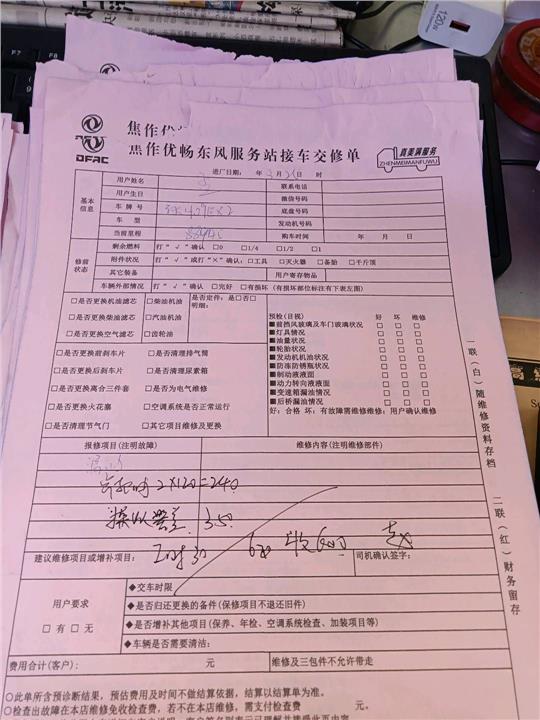 120W
F7
F8
焦作优
DFAC
焦作优畅东风服务站接车交修单
真美满服务
ZHENMEIMANFUWU
进厂日期： 年 3 月 日 时
基本信息
用户姓名
联系电话
用户生日
微信号码
车牌号
底盘号码
车型
发动机号码
当前里程
购车时间
年 月 日
修前状态
剩余燃料 打“√”确认 □0 □1/4 □1/2 □1
附件状况 打“√”或打“×”确认：□工具 □灭火器 □备胎 □千斤顶
其它装备
用户寄存物品
车辆外部情况 打“√”确认 □完好 □有损坏（有损坏部位标注有下表左图）
□是否更换机油滤芯 □柴油机油
□是否更换柴油滤芯 □汽油机油
□是否更换空气滤芯 □齿轮油
是否定件：是□否□
明细：
□是否更换前刹车片 □是否清理排气筒
□是否更换后刹车片 □是否清理尿素箱
□是否更换离合三件套 □是否为电气维修
□是否更换火花塞 □空调系统是否正常运行
□是否清理节气门 □其它项目维修及更换
预检（目视） 好 坏 维修
■前挡风玻璃及车门玻璃状况 □ □ □
■灯具情况 □ □ □
■油量状况 □ □ □
■轮胎状况 □ □ □
■发动机机油状况 □ □ □
■防冻防锈瓶状况 □ □ □
■制动液液面 □ □ □
■动力转向液液面 □ □ □
■变速箱漏油情况 □ □ □
■后桥漏油情况 □ □ □
好：合格 坏：有故障需维修维修：用户确认维修
报修项目（注明故障）
维修内容（注明维修部件）
2×120=240
350
建议维修项目或增补项目：
司机确认签字：
用户要求
□有 □无
◆交车时限
◆是否归还更换的备件（保修项目不退还旧件）
◆是否增补其他项目（保养、年检、空调系统检查、加装项目等）
◆车辆是否需要清洁：
费用合计（客户）： 元
维修及三包件不允许带走
○此单所含预诊断结果，预估费用及时间不做结算依据，结算以结算单为准。
○检查出故障在本店维修免收检查费，若不在本店维修，需支付检查费 元。
一联（白）随维修资料存档
二联（红）财务留存